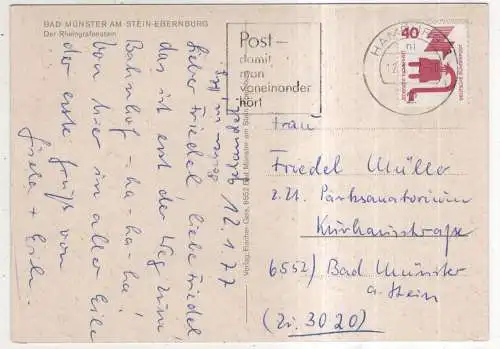 BAD MÜNSTER AM STEIN-EBERNBURG
Der Rheingrafenstein
gelandet
12.1.77
Lieber Friedel, liebe Friedel
das ist erst der Weg zum
Bahnhof - ha - ha - ha!
Von hier in aller Eile
der erste Gruß von
Gisela + Eich.
Verlag Fischer-Gers, 6552 Bad Münster am Stein
Post –
damit
man
voneinander
hört
HAN
40
DEUTSCHE BUNDESPOST
Frau
Friedel Müller
z.Zt. Parksanatorium
Kurhausstraße
6552) Bad Münster
a. Stein
(Zi. 3020)